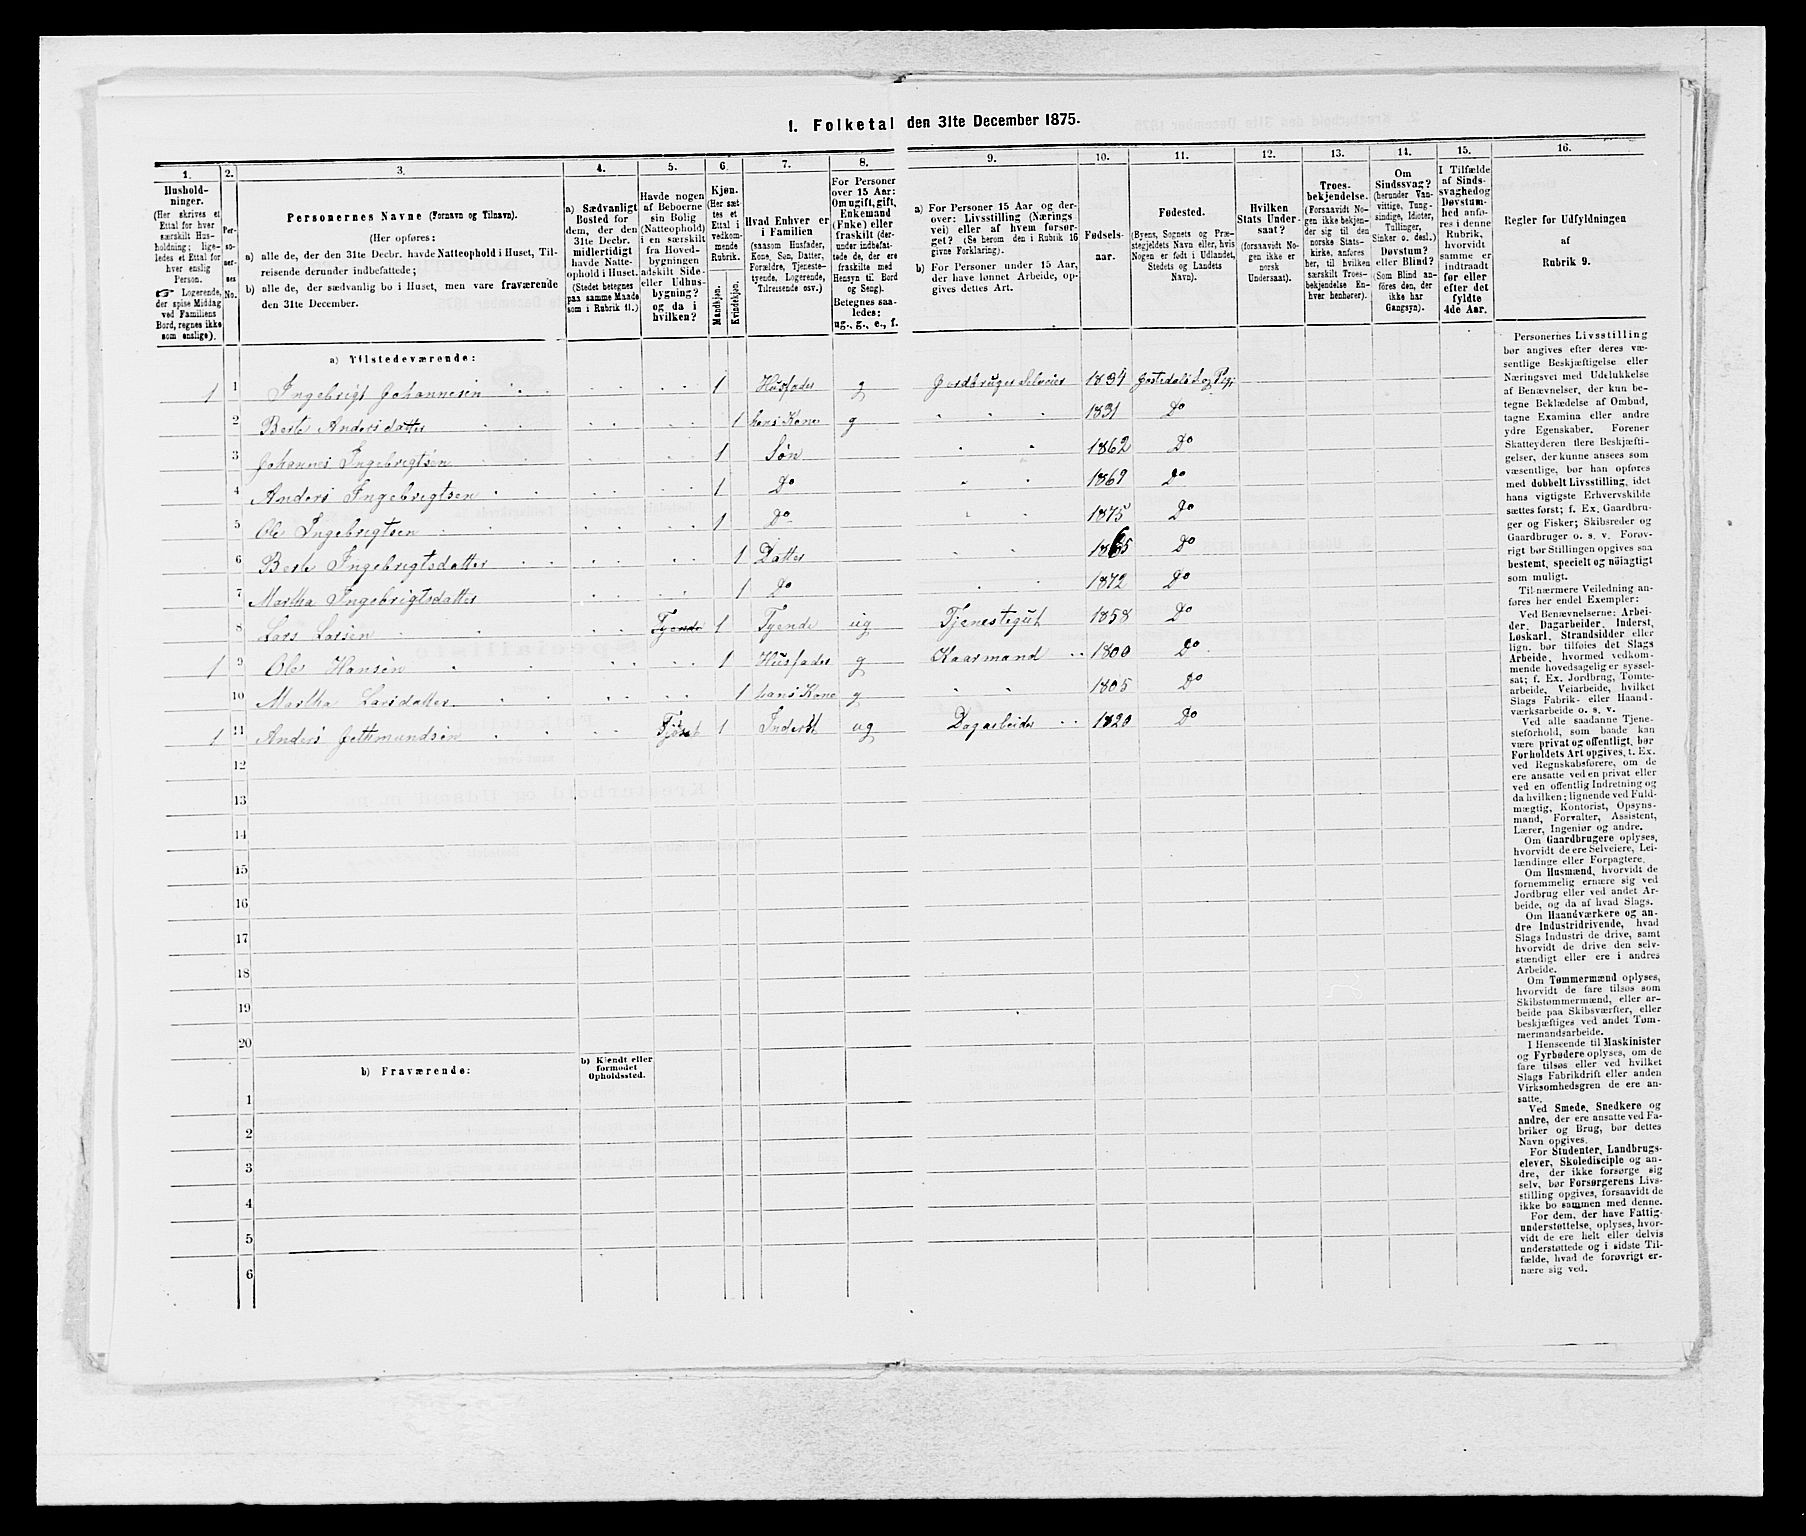 1. Folketal den 31te December 1875.
1. 2. 3. 4. 5. 6. 7. 8. 9. 10. 11. 12. 13. 14. 15. 16.
Hushold-
ninger.
(Her skrives et
Ettal for hver
særskilt Hus-
holdning; lige-
ledes et Ettal for
hver enslig
Person.
☞ Logerende,
der spise Middag
ved Familiens
Bord, regnes ikke
som enslige).
Per-
so-
ner-
nes
No.
Personernes Navne (Fornavn og Tilnavn).
(Her opføres:
a) alle de, der den 31te Decbr. havde Natteophold i Huset, Til-
reisende derunder indbefattede;
b) alle de, der sædvanlig bo i Huset, men vare fraværende
den 31te December.
a) Sædvanligt
Bosted for
dem, der den
31te Decbr.
midlertidigt
havde Natte-
ophold i Huset.
(Stedet betegnes
paa samme Maade
som i Rubrik 11.)
Havde nogen
af Beboerne
sin Bolig
(Natteophold)
i en særskilt
fra Hoved-
bygningen
adskilt Side-
eller Udhus-
bygning?
og da i
hvilken?
Kjøn.
(Her sæt-
tes et
Ettal i
vedkom-
mende
Rubrik.
Mandkjøn.
Kvindekjøn.
Hvad Enhver er
i Familien
(saasom Husfader,
Kone, Søn, Datter,
Forældre, Tjeneste-
tyende, Logerende,
Tilreisende osv.)
For Personer
over 15 Aar:
Om ugift, gift,
Enkemand
(Enke) eller
fraskilt (der-
under indbefat-
tede de, der ere
fraskilte med
Hensyn til Bord
og Seng).
Betegnes saa-
ledes:
ug., g., e., f.
a) For Personer 15 Aar og der-
over: Livsstilling (Nærings
vei) eller af hvem forsør-
get? (Se herom den i Rubrik 16
givne Forklaring).
b) For Personer under 15 Aar,
der have lønnet Arbeide, op-
gives dettes Art.
Fødsels-
aar.
Fødested.
(Byens, Sognets og Præ-
stegjeldets Navn eller, hvis
Nogen er født i Udlandet,
Stedets og Landets
Navn).
Hvilken
Stats Under-
saat?
(forsaavidt No-
gen ikke er
norsk
Undersaat).
Troes-
bekjendelse.
(Forsaavidt No-
gen ikke bekjen-
der sig til den
norske Stats-
kirke, anføres
her, til hvilken
særskilt Troes-
bekjendelse En-
hver henhører).
Om
Sindssvag?
(herunder Van-
vittige, Tung-
sindige, Idioter,
Tullinger,
Sinker o. desl.)
Døvstum?
eller Blind?
(Som Blind an-
føres den, der
ikke har
Gangsyn).
I Tilfælde
af Sinds-
svaghed og
Døvstum-
hed anfø-
res i denne
Rubrik,
hvorvidt
samme er
indtraadt
før eller
efter det
fyldte
4de Aar.
Regler for Udfyldningen
af
Rubrik 9.
a) Tilstedeværende:
1 1 Ingebrigt Johannesen 1 Husfader g Jordbruger Selveier 1834
2 Berte Andersdatter 1 hans Kone g 1831 Do
3 Johannes Ingebrigtsen 1 Søn 1862 Do
4 Anders Ingebrigtsen 1 Do 1869 Do
5 Ole Ingebrigtsen 1 Do 1875 Do
6 Berte Ingebrigtsdatter 1 Datter 1865 Do
7 Martha Ingebrigtsdatter 1 Do 1872 Do
8 Lars Larsen Tyende 1 Tyende ug Tjenestegut 1858 Do
1 9 Ole Hansen 1 Husfader g Kaarmand 1800 Do
10 Martha Larsdatter 1 hans Kone g 1805 Do
1 11 Anders 1 Inderst ug Dagarbeider 1820 Do
12
13
14
15
16
17
18
19
20
b) Fraværende:
b) Kjendt eller
formodet
Opholdssted.
1
2
3
4
5
6
Personernes Livsstilling
bør angives efter deres væ-
sentlige Beskjæftigelse eller
Næringsvei med Udelukkelse
af Benævnelser, der kun be-
tegne Beklædelse af Ombud,
tagne Examina eller andre
ydre Egenskaber. Forener
Skatteyderen flere Beskjæfti-
gelser, der kunne ansees som
væsentlige, bør han opføres
med dobbelt Livsstilling, idet
hans vigtigste Erhvervskilde
sættes først; f. Ex. Gaardbru-
ger og Fisker; Skibsreder og
Gaardbruger o. s. v. Forøv-
rigt bør Stillingen opgives saa
bestemt, specielt og nöiagtigt
som muligt.
Til nærmere Veiledning an-
føres her endel Exempler:
Ved Benævnelserne: Arbei-
der, Dagarbeider, Inderst,
Løskarl, Strandsidder eller
lign. bør tilføies det Slags
Arbeide, hvormed vedkom-
mende hovedsagelig er syssel-
sat; f. Ex. Jordbrug, Tomte-
arbeide, Veiarbeide, hvilket
Slags Fabrik- eller Haand-
værksarbeide o. s. v.
Ved alle saadanne Tjene-
steforhold, som baade kan
være privat og offentligt, bør
Forholdets Art opgives, t. Ex.
ved Regnskabsførere, om de
ere ansatte ved en privat eller
ved en offentlig Indretning og
da hvilken; lignende ved Fuld-
mægtig, Kontorist, Opsyns-
mand, Forvalter, Assistent,
Lærer, Ingeniør og andre.
Om Gaardbrugere oplyses,
hvorvidt de ere Selveiere, Lei-
lændinge eller Forpagtere.
Om Husmænd, hvorvidt de
fornemmelig ernære sig ved
Jordbrug eller ved andet Ar-
beide, og da af hvad Slags.
Om Haandværkere og an-
dre Industridrivende, hvad
Slags Industri de drive, samt
hvorvidt de drive den selv-
stændigt eller ere i andres
Arbeide.
Om Tømmermænd oplyses,
hvorvidt de fare tilsøs som
Skibstømmermænd, eller ar-
beide paa Skibsværfter, eller
beskjæftiges ved andet Tøm-
mermandsarbeide.
I Henseende til Maskinister
og Fyrbødere oplyses, om de
fare tilsøs eller ved hvilket
Slags Fabrikdrift eller anden
Virksomhedsgren de ere an-
satte.
Ved Smede, Snedkere og
andre, der ere ansatte ved Fa-
briker og Brug, bør dettes
Navn opgives.
For Studenter, Landbrugs-
elever, Skoledisciple og an-
dre, der ikke forsørge sig
selv, bør Forsørgerens Livs-
stilling opgives, forsaavidt de
ikke bo sammen med denne.
For dem, der have Fattig-
understøttelse, oplyses, hvor-
vidt de ere helt eller delvis
understøttede og i sidste Til-
fælde, hvad de forøvrigt er-
nære sig ved.